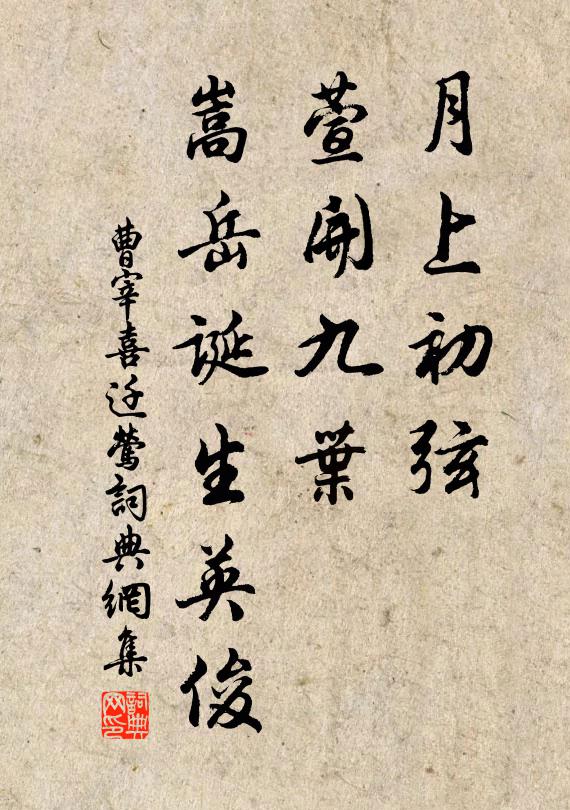 月上初弦
萱開九葉
嵩岳誕生英俊
曹宰喜迁鶯詞典網集
詞典
网印